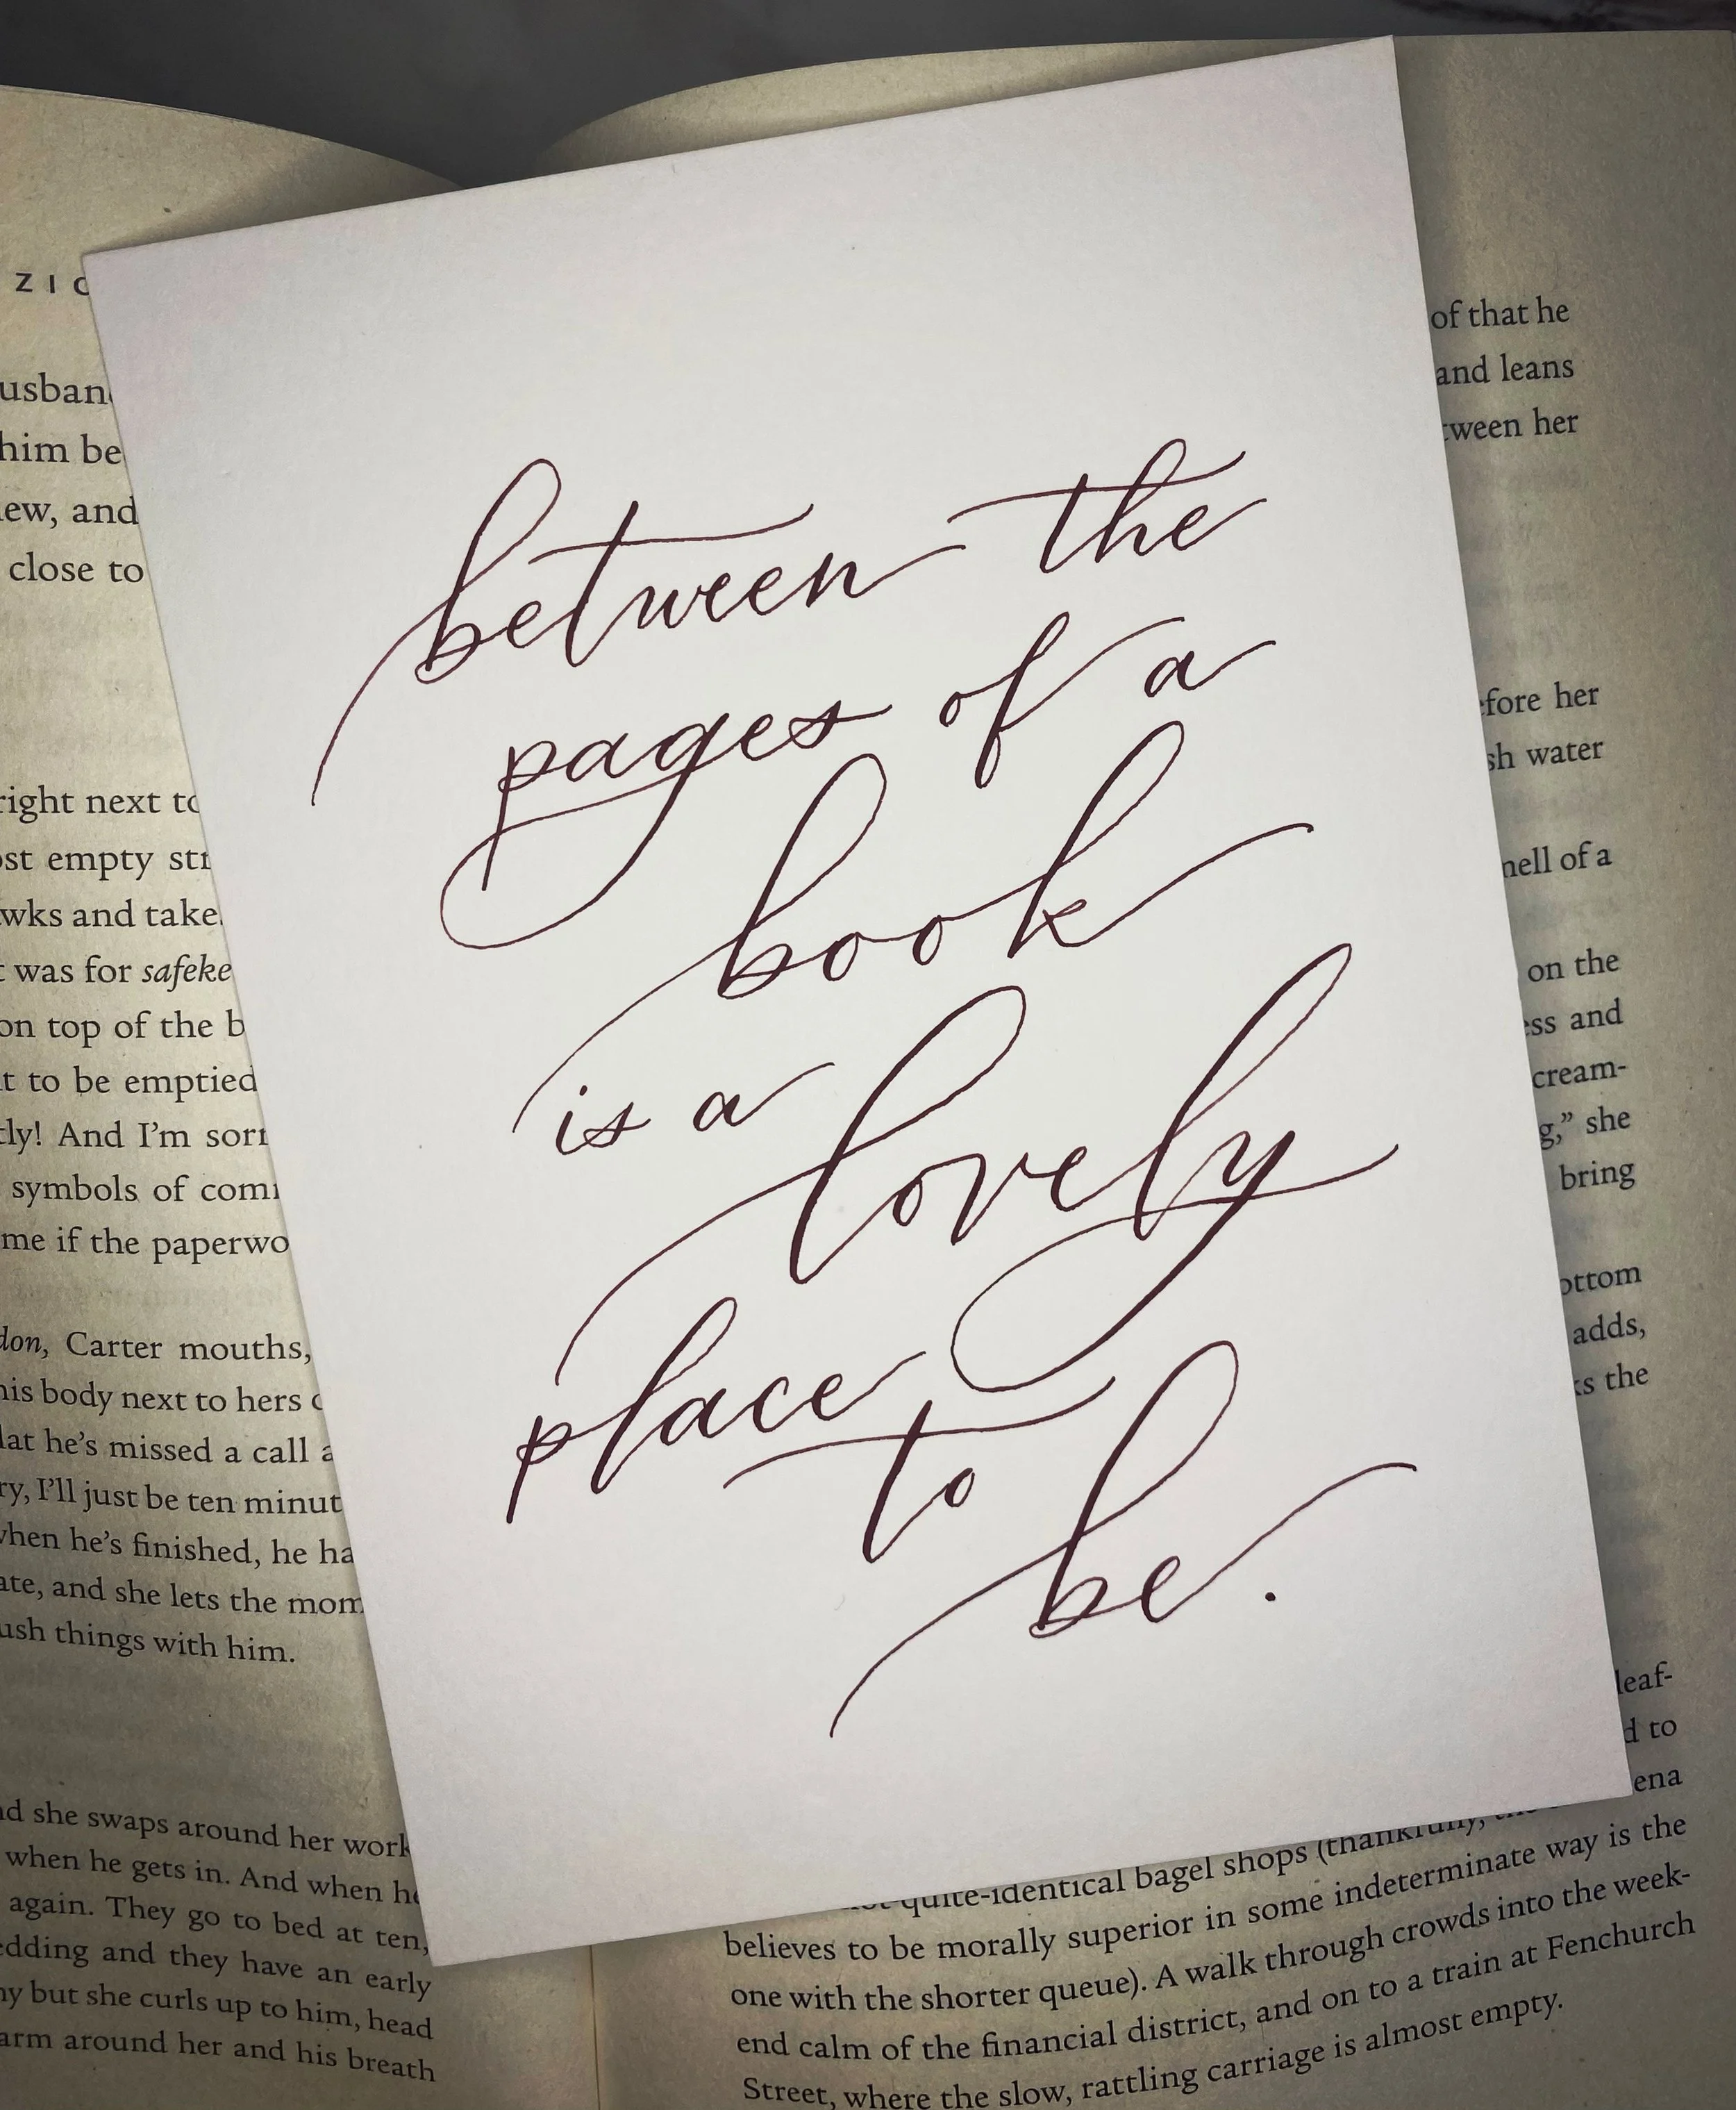 between the
pages of a
book
is a lovely
place
to
be.
him be
and
close to
right next
empty
and take
was for
on top of the
to be emptied
And I'm
symbols of
me if the
Carter mouths,
his body next to hers
he's missed a call
I'll just be ten
when he's finished, he
and she lets the
things with him.
she swaps around her
when he gets in. And when
again. They go to bed at ten,
and they have an early
but she curls up to him, head
arm around her and his breath
of that he
and leans
her
her
water
of a
on the
and
cream-
she
bring
adds,
the
leaf-
to
quite-identical bagel shops (thankfully,
believes to be morally superior in some indeterminate way is the
one with the shorter queue). A walk through crowds into the week-
end calm of the financial district, and on to a train at Fenchurch
Street, where the slow, rattling carriage is almost empty.